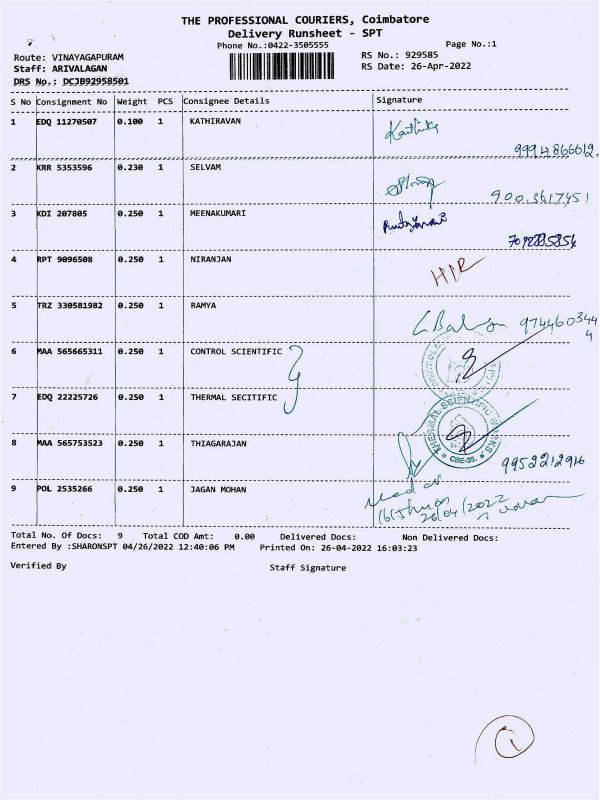 THE PROFESSIONAL COURIERS, Coimbatore
Delivery Runsheet - SPT
Phone No.:0422-3505555 Page No.:1
Route: VINAYAGAPURAM RS No.: 929585
Staff: ARIVALAGAN RS Date: 26-Apr-2022
DRS No.: DCJB92958501
S No Consignment No Weight PCS Consignee Details Signature
1 EDQ 11270507 0.100 1 KATHIRAVAN
9994866012.
2 KRR 5353596 0.230 1 SELVAM
9003617451
3 KDI 207805 0.250 1 MEENAKUMARI
4 RPT 9096508 0.250 1 NIRANJAN
5 TRZ 330581982 0.250 1 RAMYA
9744603444
6 MAA 565665311 0.250 1 CONTROL SCIENTIFIC
7 EDQ 22225726 0.250 1 THERMAL SECITIFIC
THERMAL SCIENTIFIC WORKS
CBE-35.
8 MAA 565753523 0.250 1 THIAGARAJAN
9952212916
9 POL 2535266 0.250 1 JAGAN MOHAN
26/04/2022
Total No. Of Docs: 9 Total COD Amt: 0.00 Delivered Docs: Non Delivered Docs:
Entered By :SHARONSPT 04/26/2022 12:40:06 PM Printed On: 26-04-2022 16:03:23
Verified By Staff Signature
1